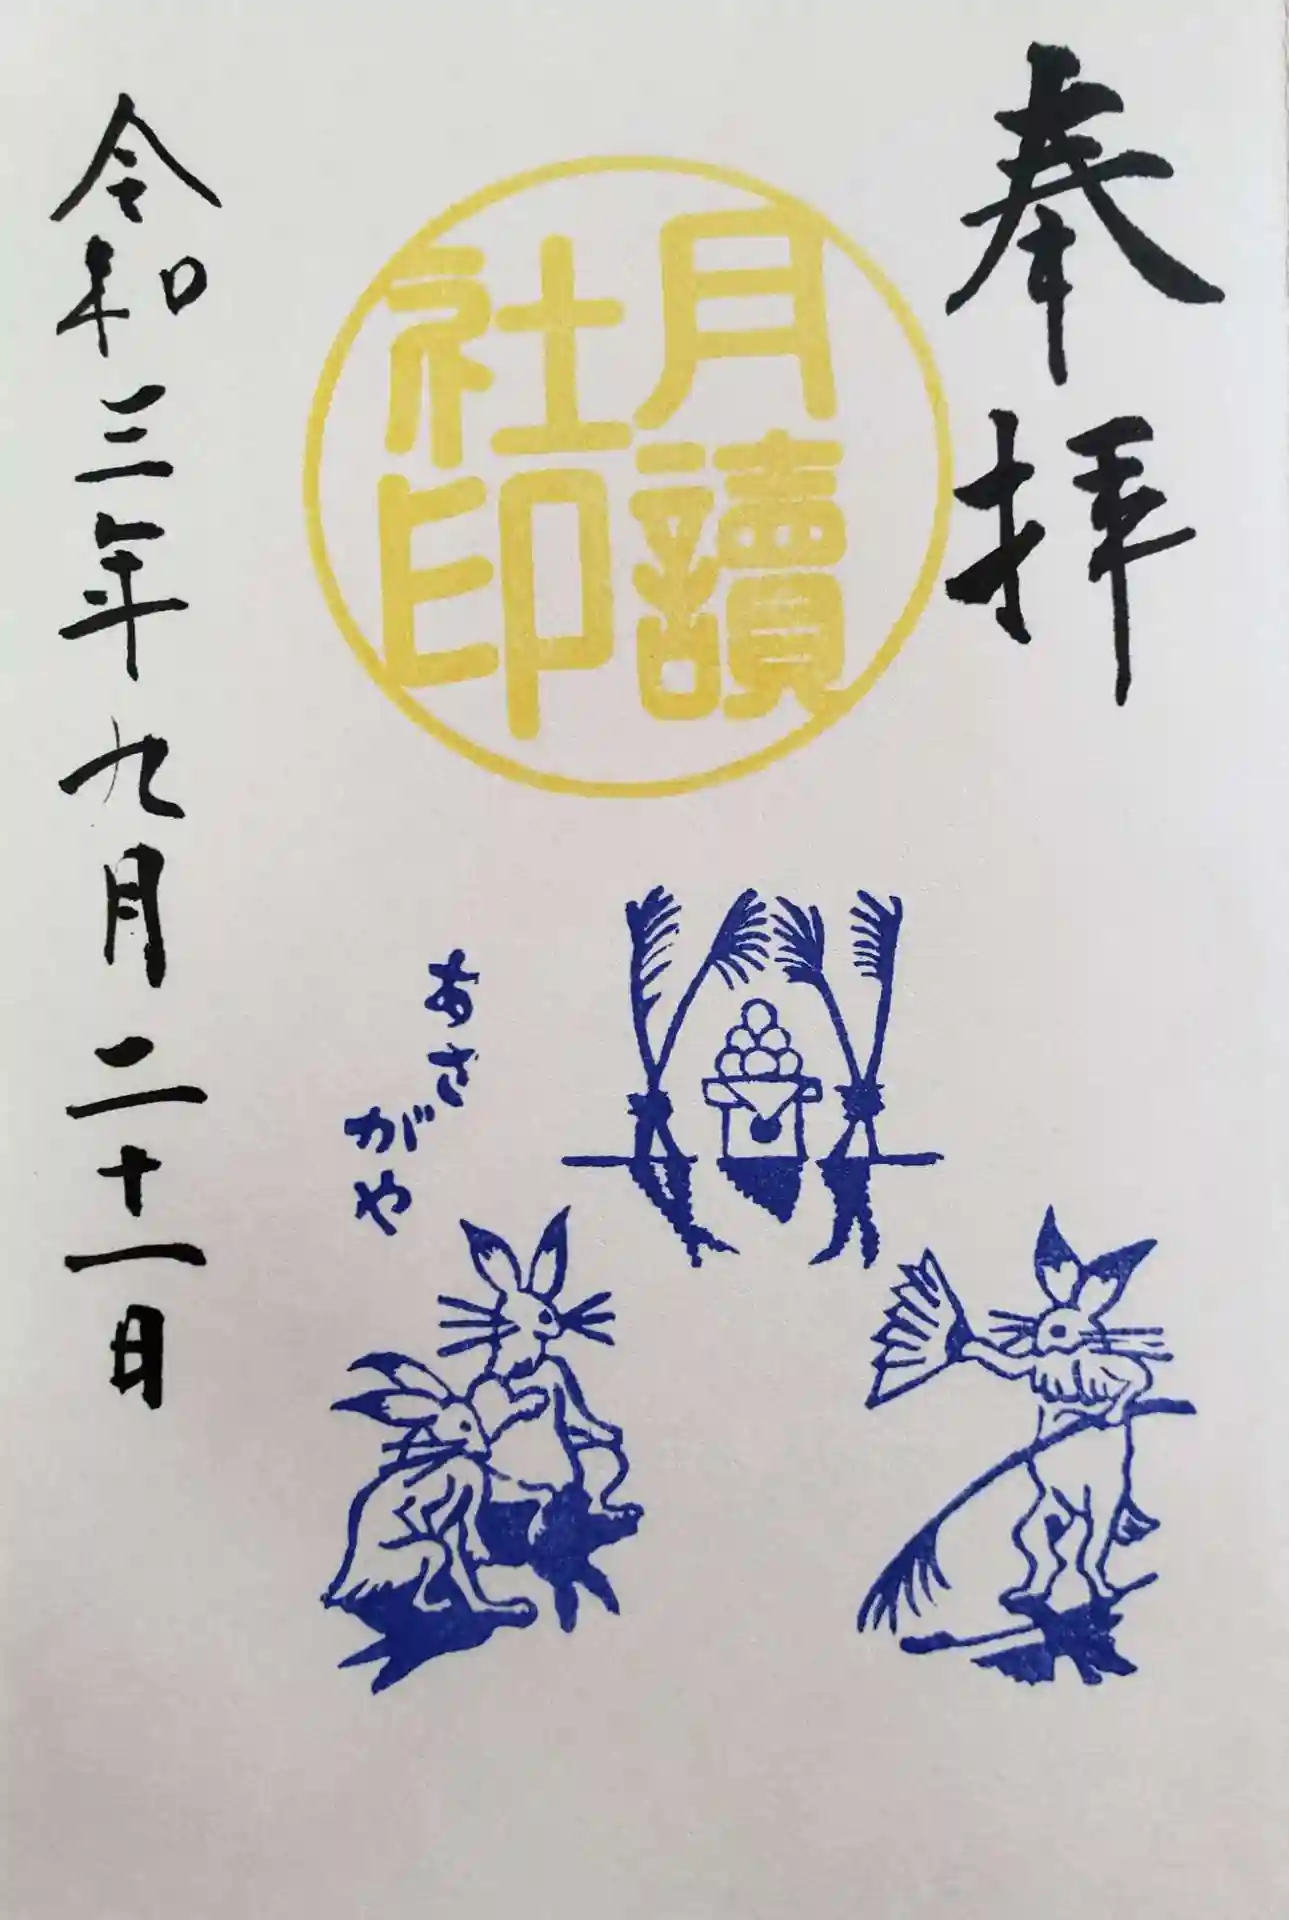 奉拝
月讀
社印
あさがや
令和三年九月二十一日